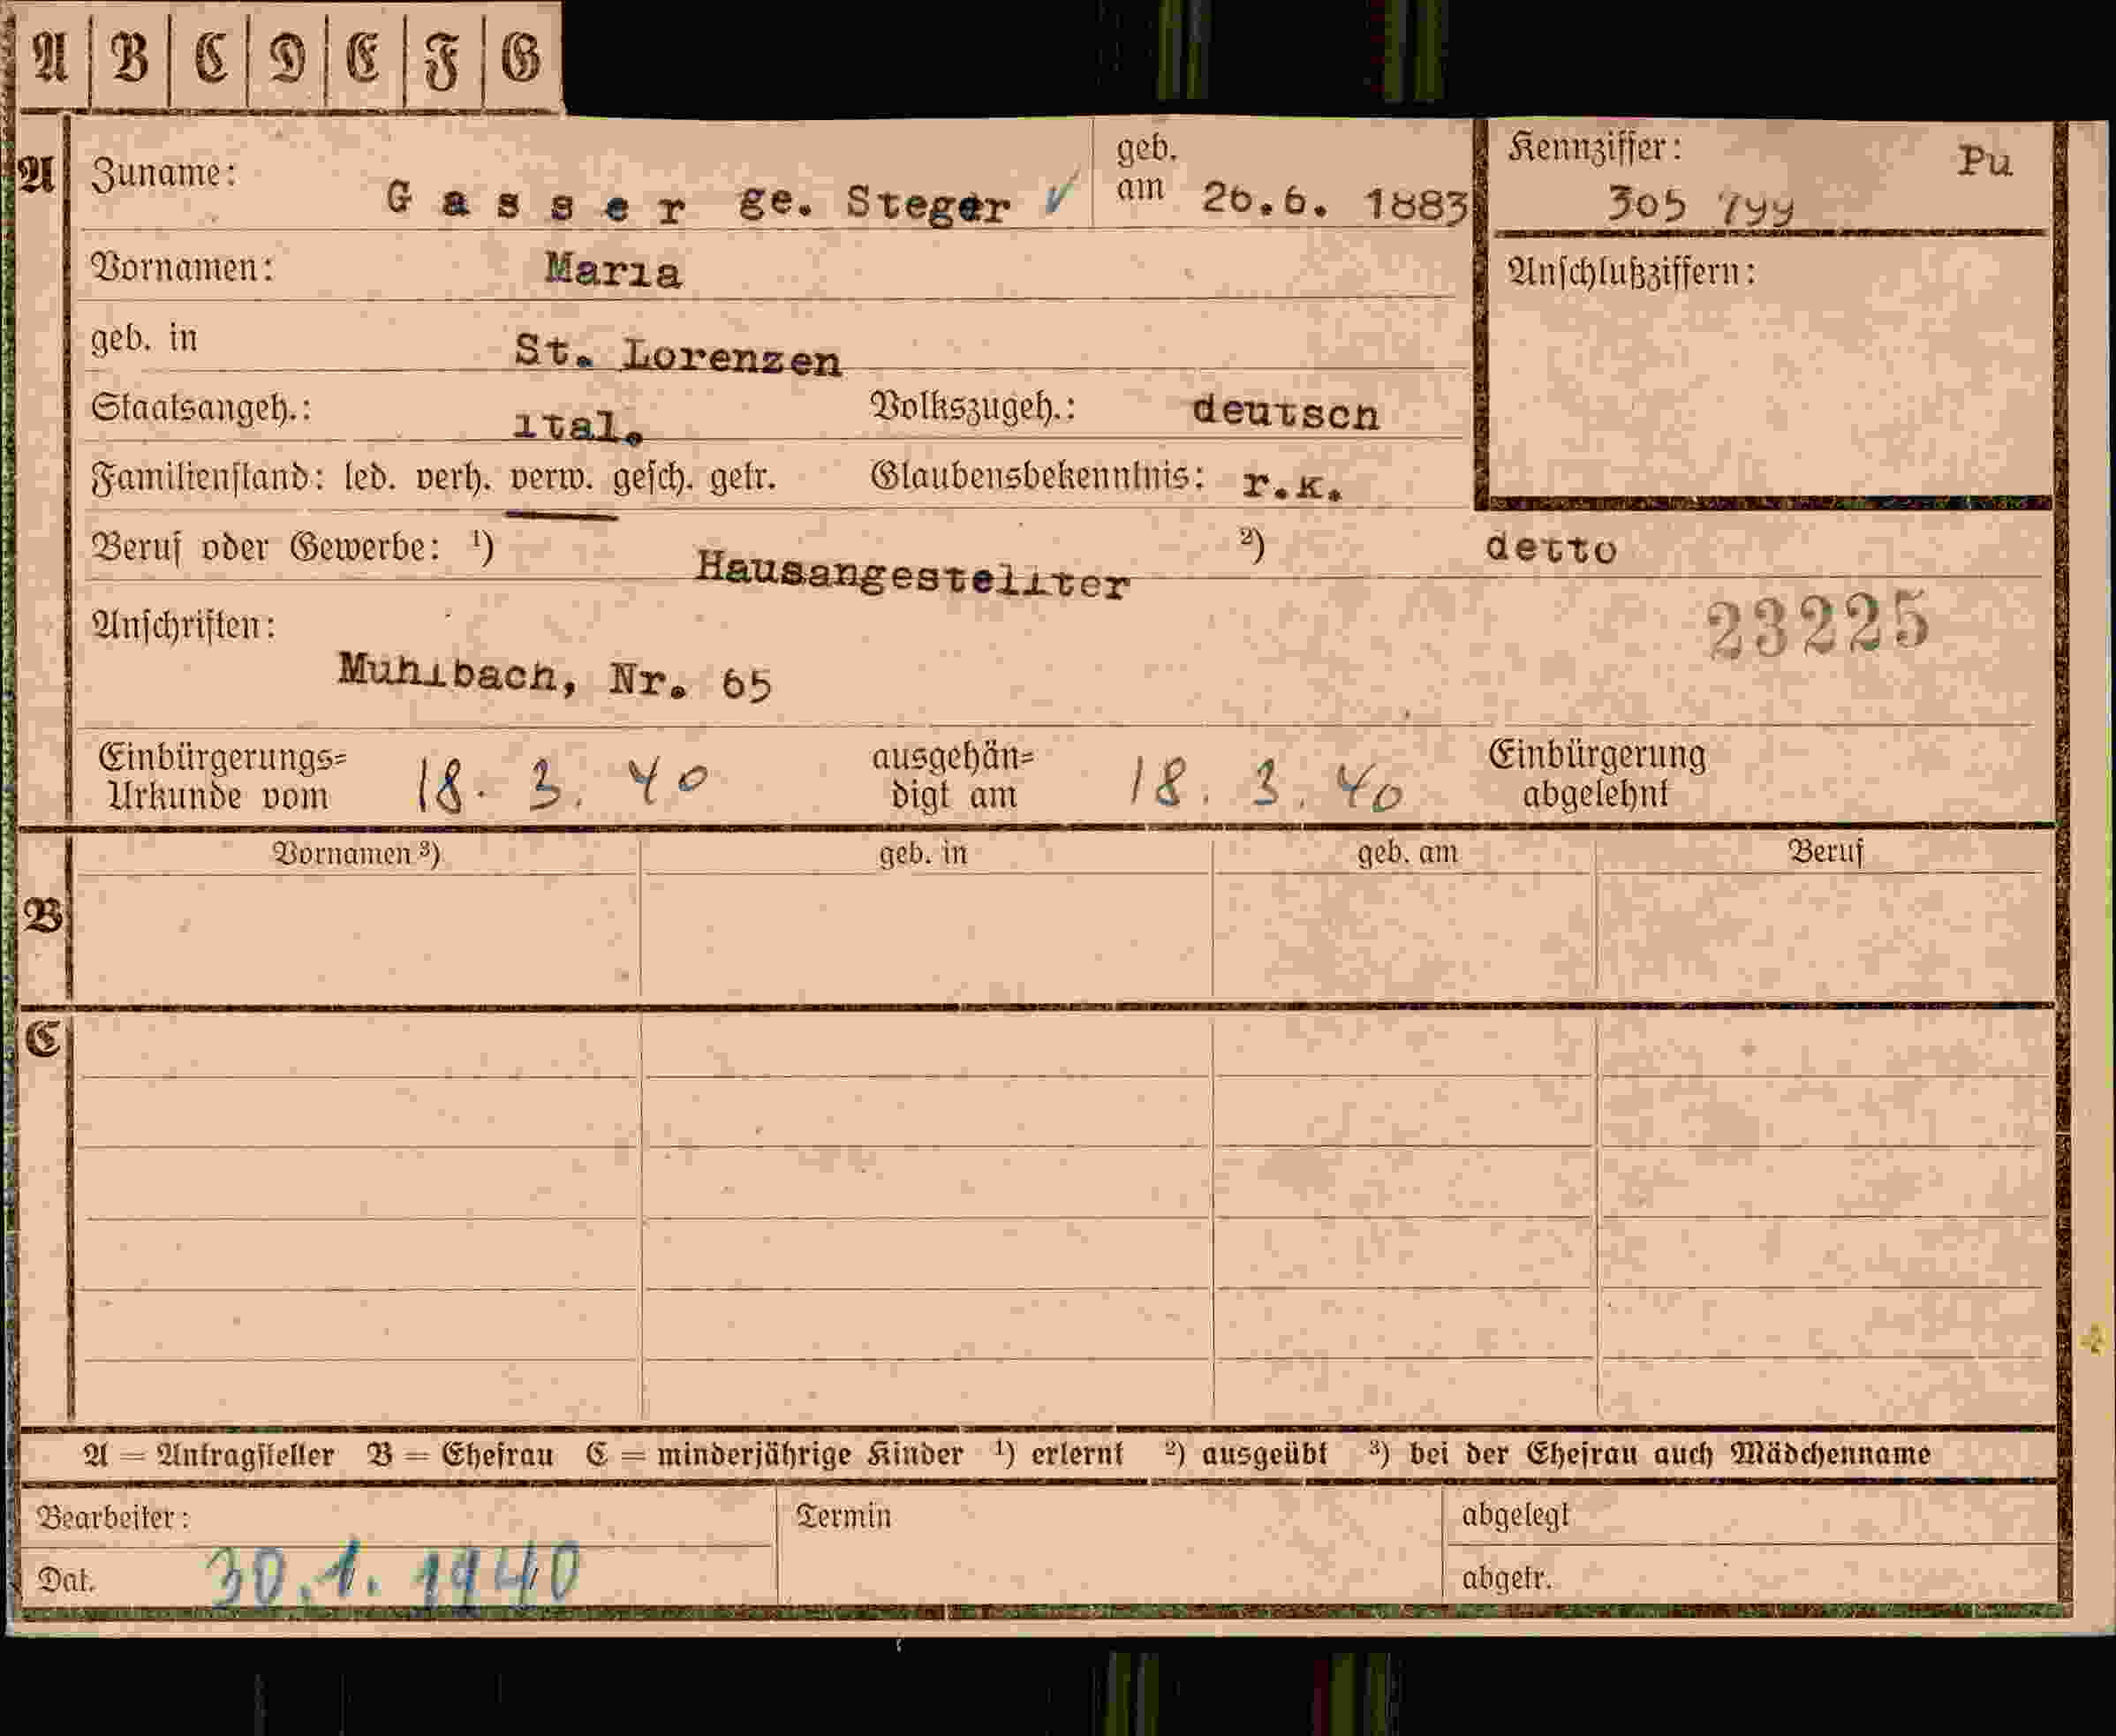 A B C D E F G
A Zuname: Gasser ge. Steger geb. am 26.6. 1883
Kennziffer: Pu
305 799
Vornamen: Maria
Anschlußziffern:
geb. in St. Lorenzen
Staatsangeh.: ital. Volkszugeh.: deutsch
Familienstand: led. verh. verw. gesch. getr. Glaubensbekenntnis: r.k.
Beruf oder Gewerbe: ¹) Hausangestellter ²) detto
Anschriften: 23225
Muhlbach, Nr. 65
Einbürgerungs= Urkunde vom 18. 3. 40 ausgehän= digt am 18. 3. 40 Einbürgerung abgelehnt
Vornamen ³) geb. in geb. am Beruf
B
C
A = Antragsteller B = Ehefrau C = minderjährige Kinder ¹) erlernt ²) ausgeübt ³) bei der Ehefrau auch Mädchenname
Bearbeiter: Termin abgelegt
Dat. 30.1.1940 abgetr.